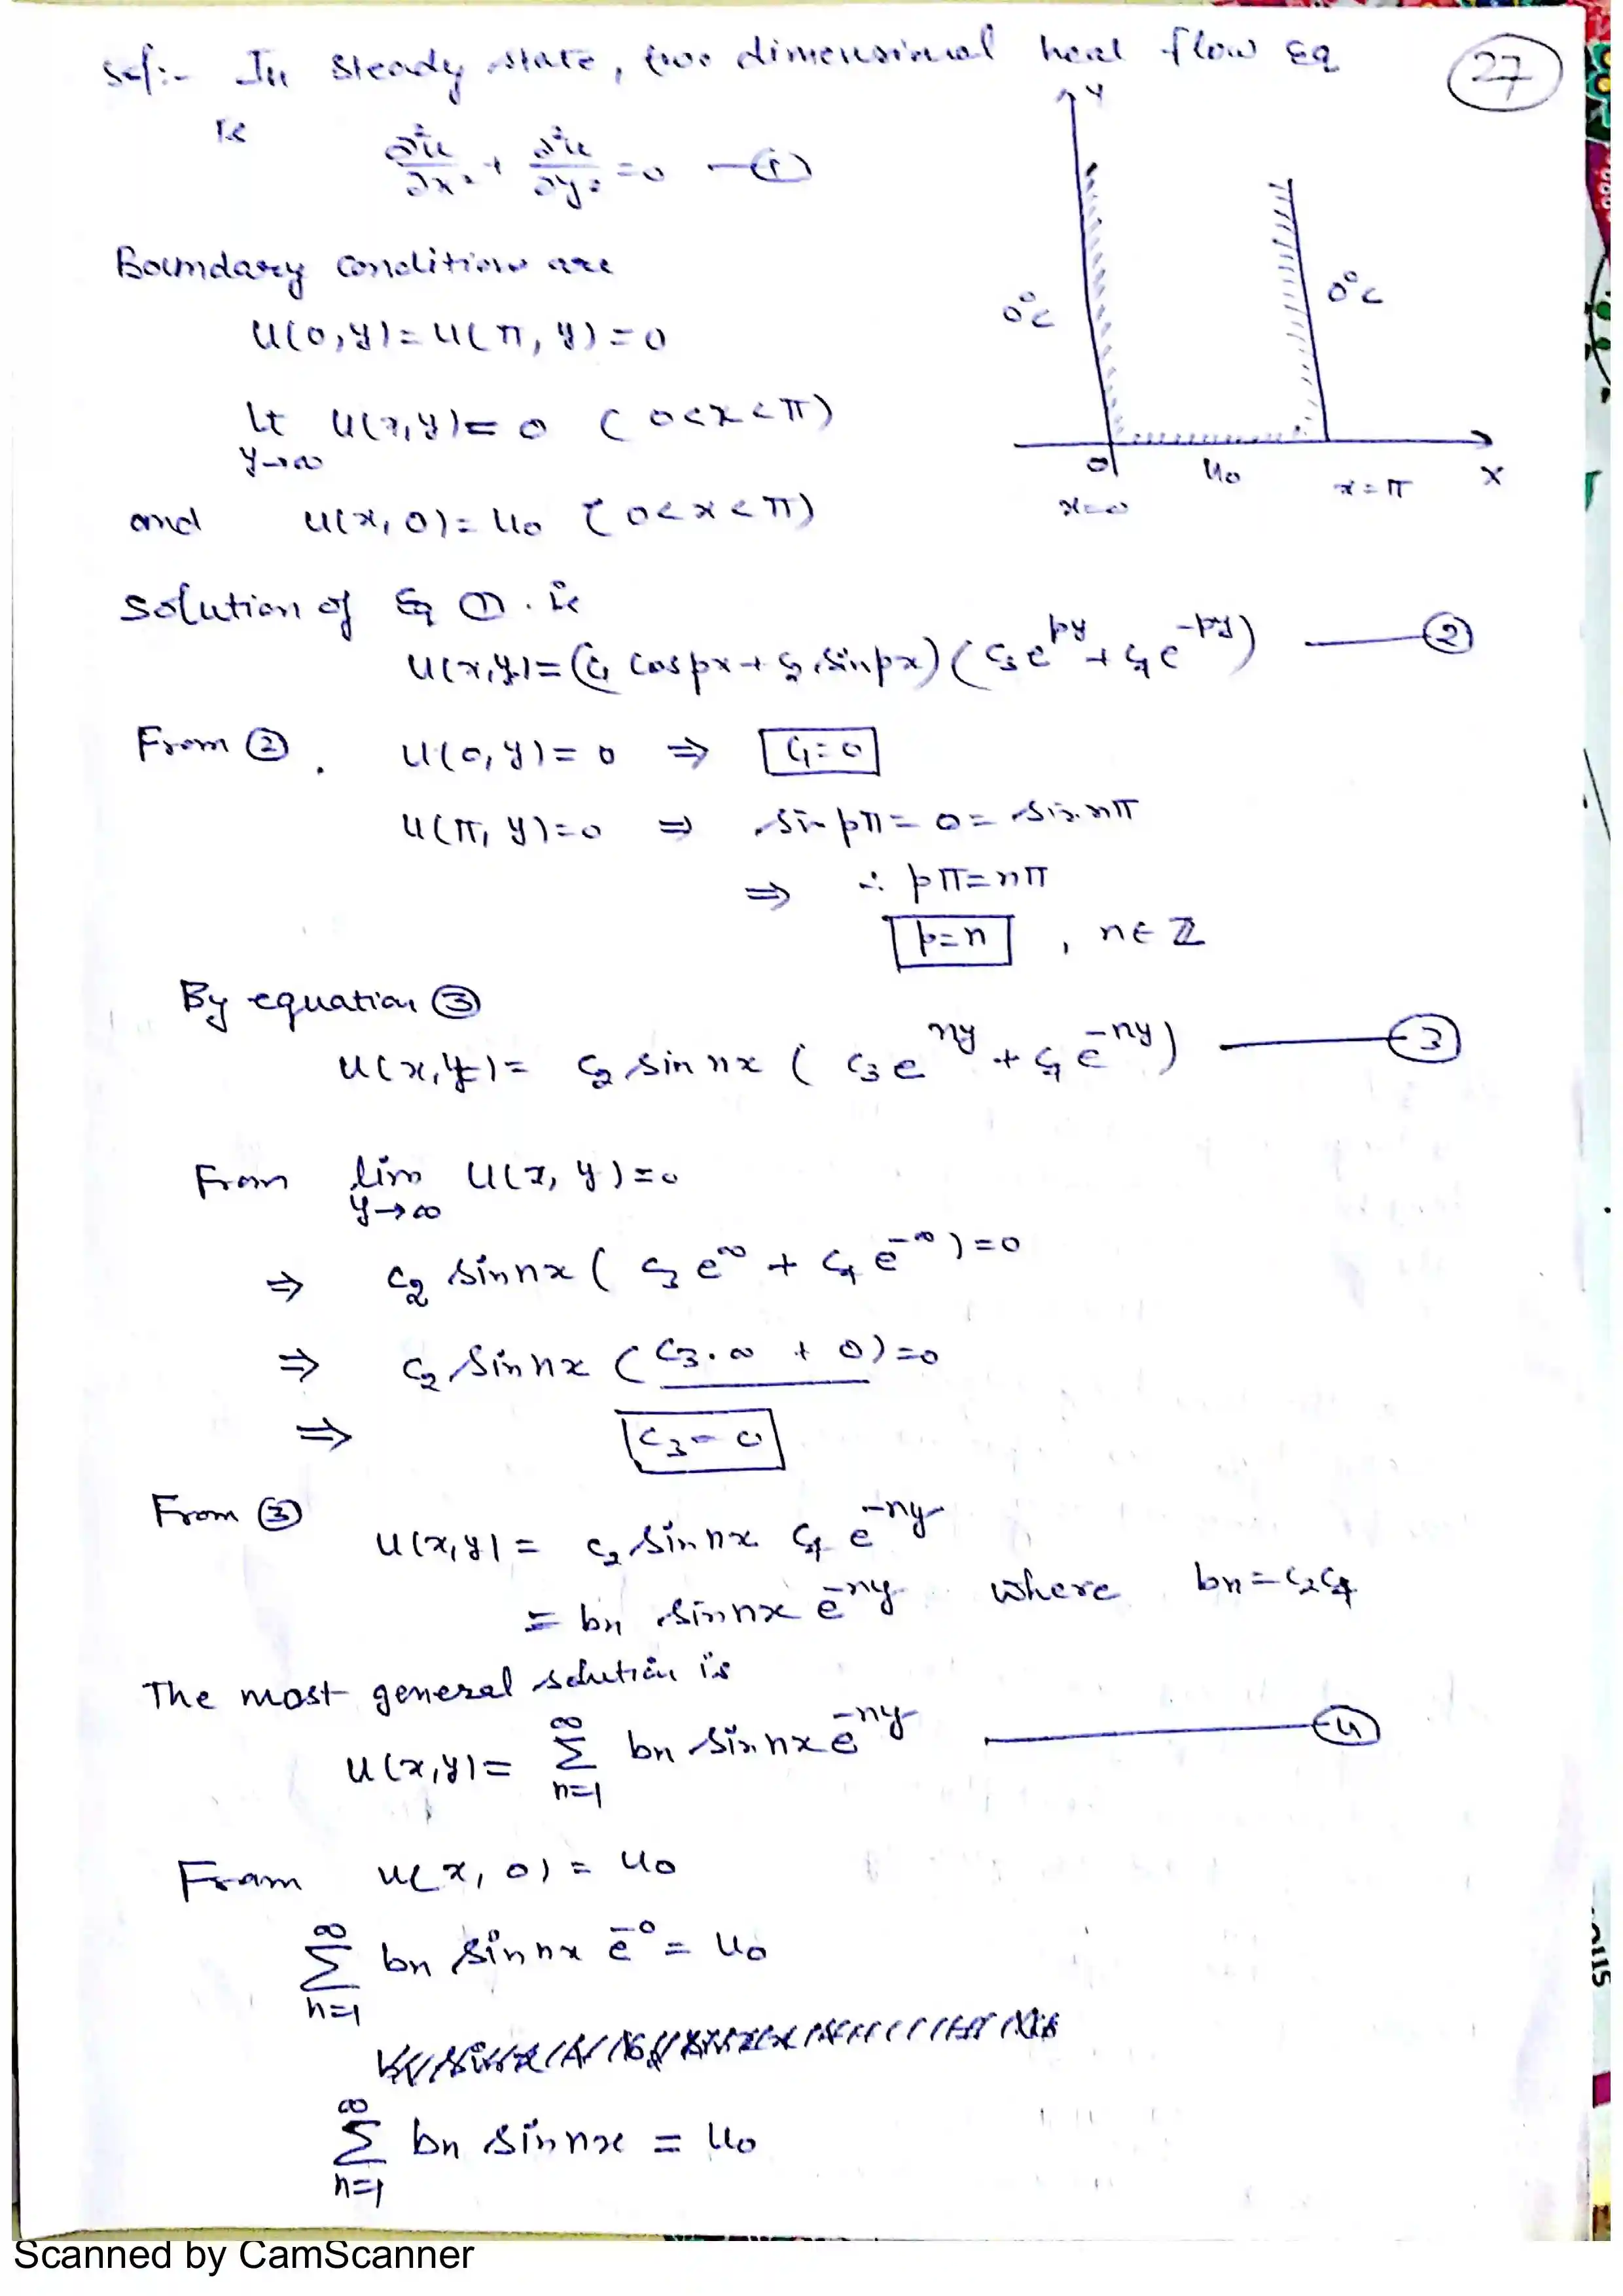 Sol:- In Steady state, two dimensional heat flow Eq
is ∂²u/∂x² + ∂²u/∂y² = 0 —①
27
Boundary conditions are
U(0,y) = U(π, y) = 0
lt U(x,y) = 0 (0<x<π)
y→∞
and U(x, 0) = U₀ (0<x<π)
Y
0°c
0°c
0
U₀
X
x=0
x=π
Solution of Eq ①. is
U(x,y) = (C₁ cos px + C₂ sin px) (C₃ e^{py} + C₄ e^{-py}) —②
From ②. U(0, y) = 0 ⇒ C₁=0
U(π, y) = 0 ⇒ sin pπ = 0 = sin nπ
⇒ ∴ pπ = nπ
p=n , n∈ℤ
By equation ③
U(x,y) = C₂ sin nx ( C₃ e^{ny} + C₄ e^{-ny}) —③
From lim U(x, y) = 0
y→∞
⇒ C₂ sin nx ( C₃ e^{∞} + C₄ e^{-∞}) = 0
⇒ C₂ sin nx ( C₃.∞ + 0) = 0
⇒ C₃ = 0
From ③ U(x,y) = C₂ sin nx C₄ e^{-ny}
= bn sin nx e^{-ny} where bn = C₂C₄
The most general solution is
U(x,y) = ∞ Σ n=1 bn sin nx e^{-ny} —④
From U(x, 0) = U₀
∞ Σ n=1 bn sin nx e^{-0} = U₀
∞ Σ n=1 bn sin nx = U₀
Scanned by CamScanner